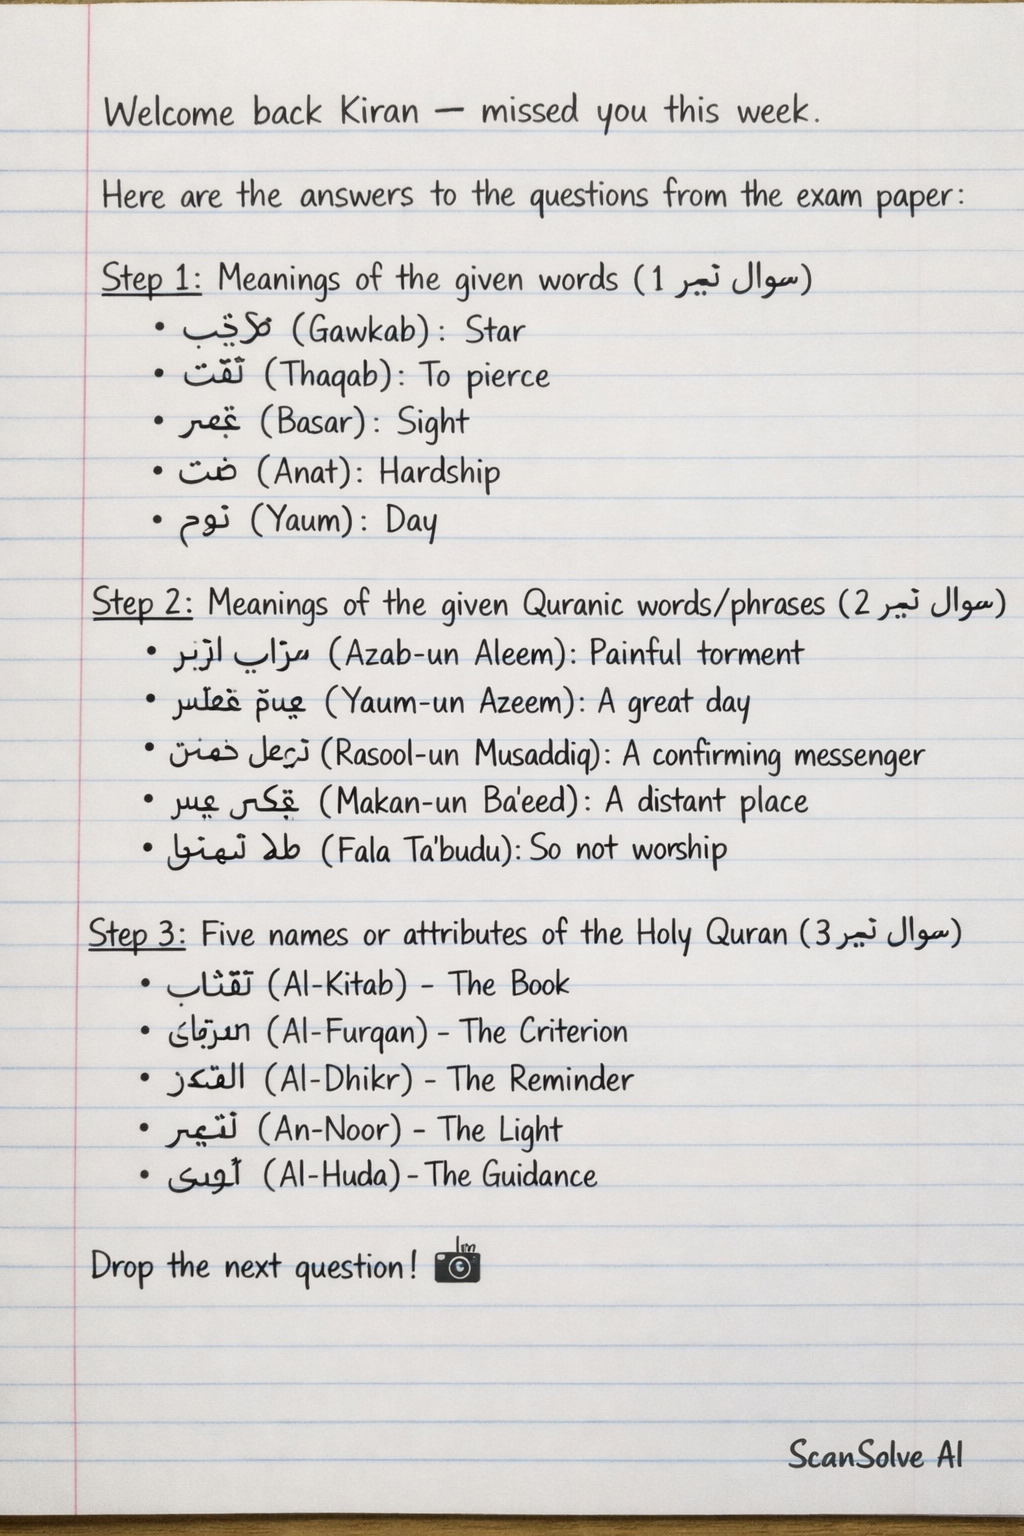 Welcome back Kiran — missed you this week.
Here are the answers to the questions from the exam paper:
Step 1: Meanings of the given words (سوال نمبر 1)
• (Gawkab): Star
• (Thaqab): To pierce
• (Basar): Sight
• (Anat): Hardship
• (Yaum): Day
Step 2: Meanings of the given Quranic words/phrases (سوال نمبر 2)
• (Azab-un Aleem): Painful torment
• (Yaum-un Azeem): A great day
• (Rasool-un Musaddiq): A confirming messenger
• (Makan-un Ba'eed): A distant place
• (Fala Ta'budu): So not worship
Step 3: Five names or attributes of the Holy Quran (سوال نمبر 3)
• (Al-Kitab) - The Book
• (Al-Furqan) - The Criterion
• (Al-Dhikr) - The Reminder
• (An-Noor) - The Light
• (Al-Huda) - The Guidance
Drop the next question!
ScanSolve AI